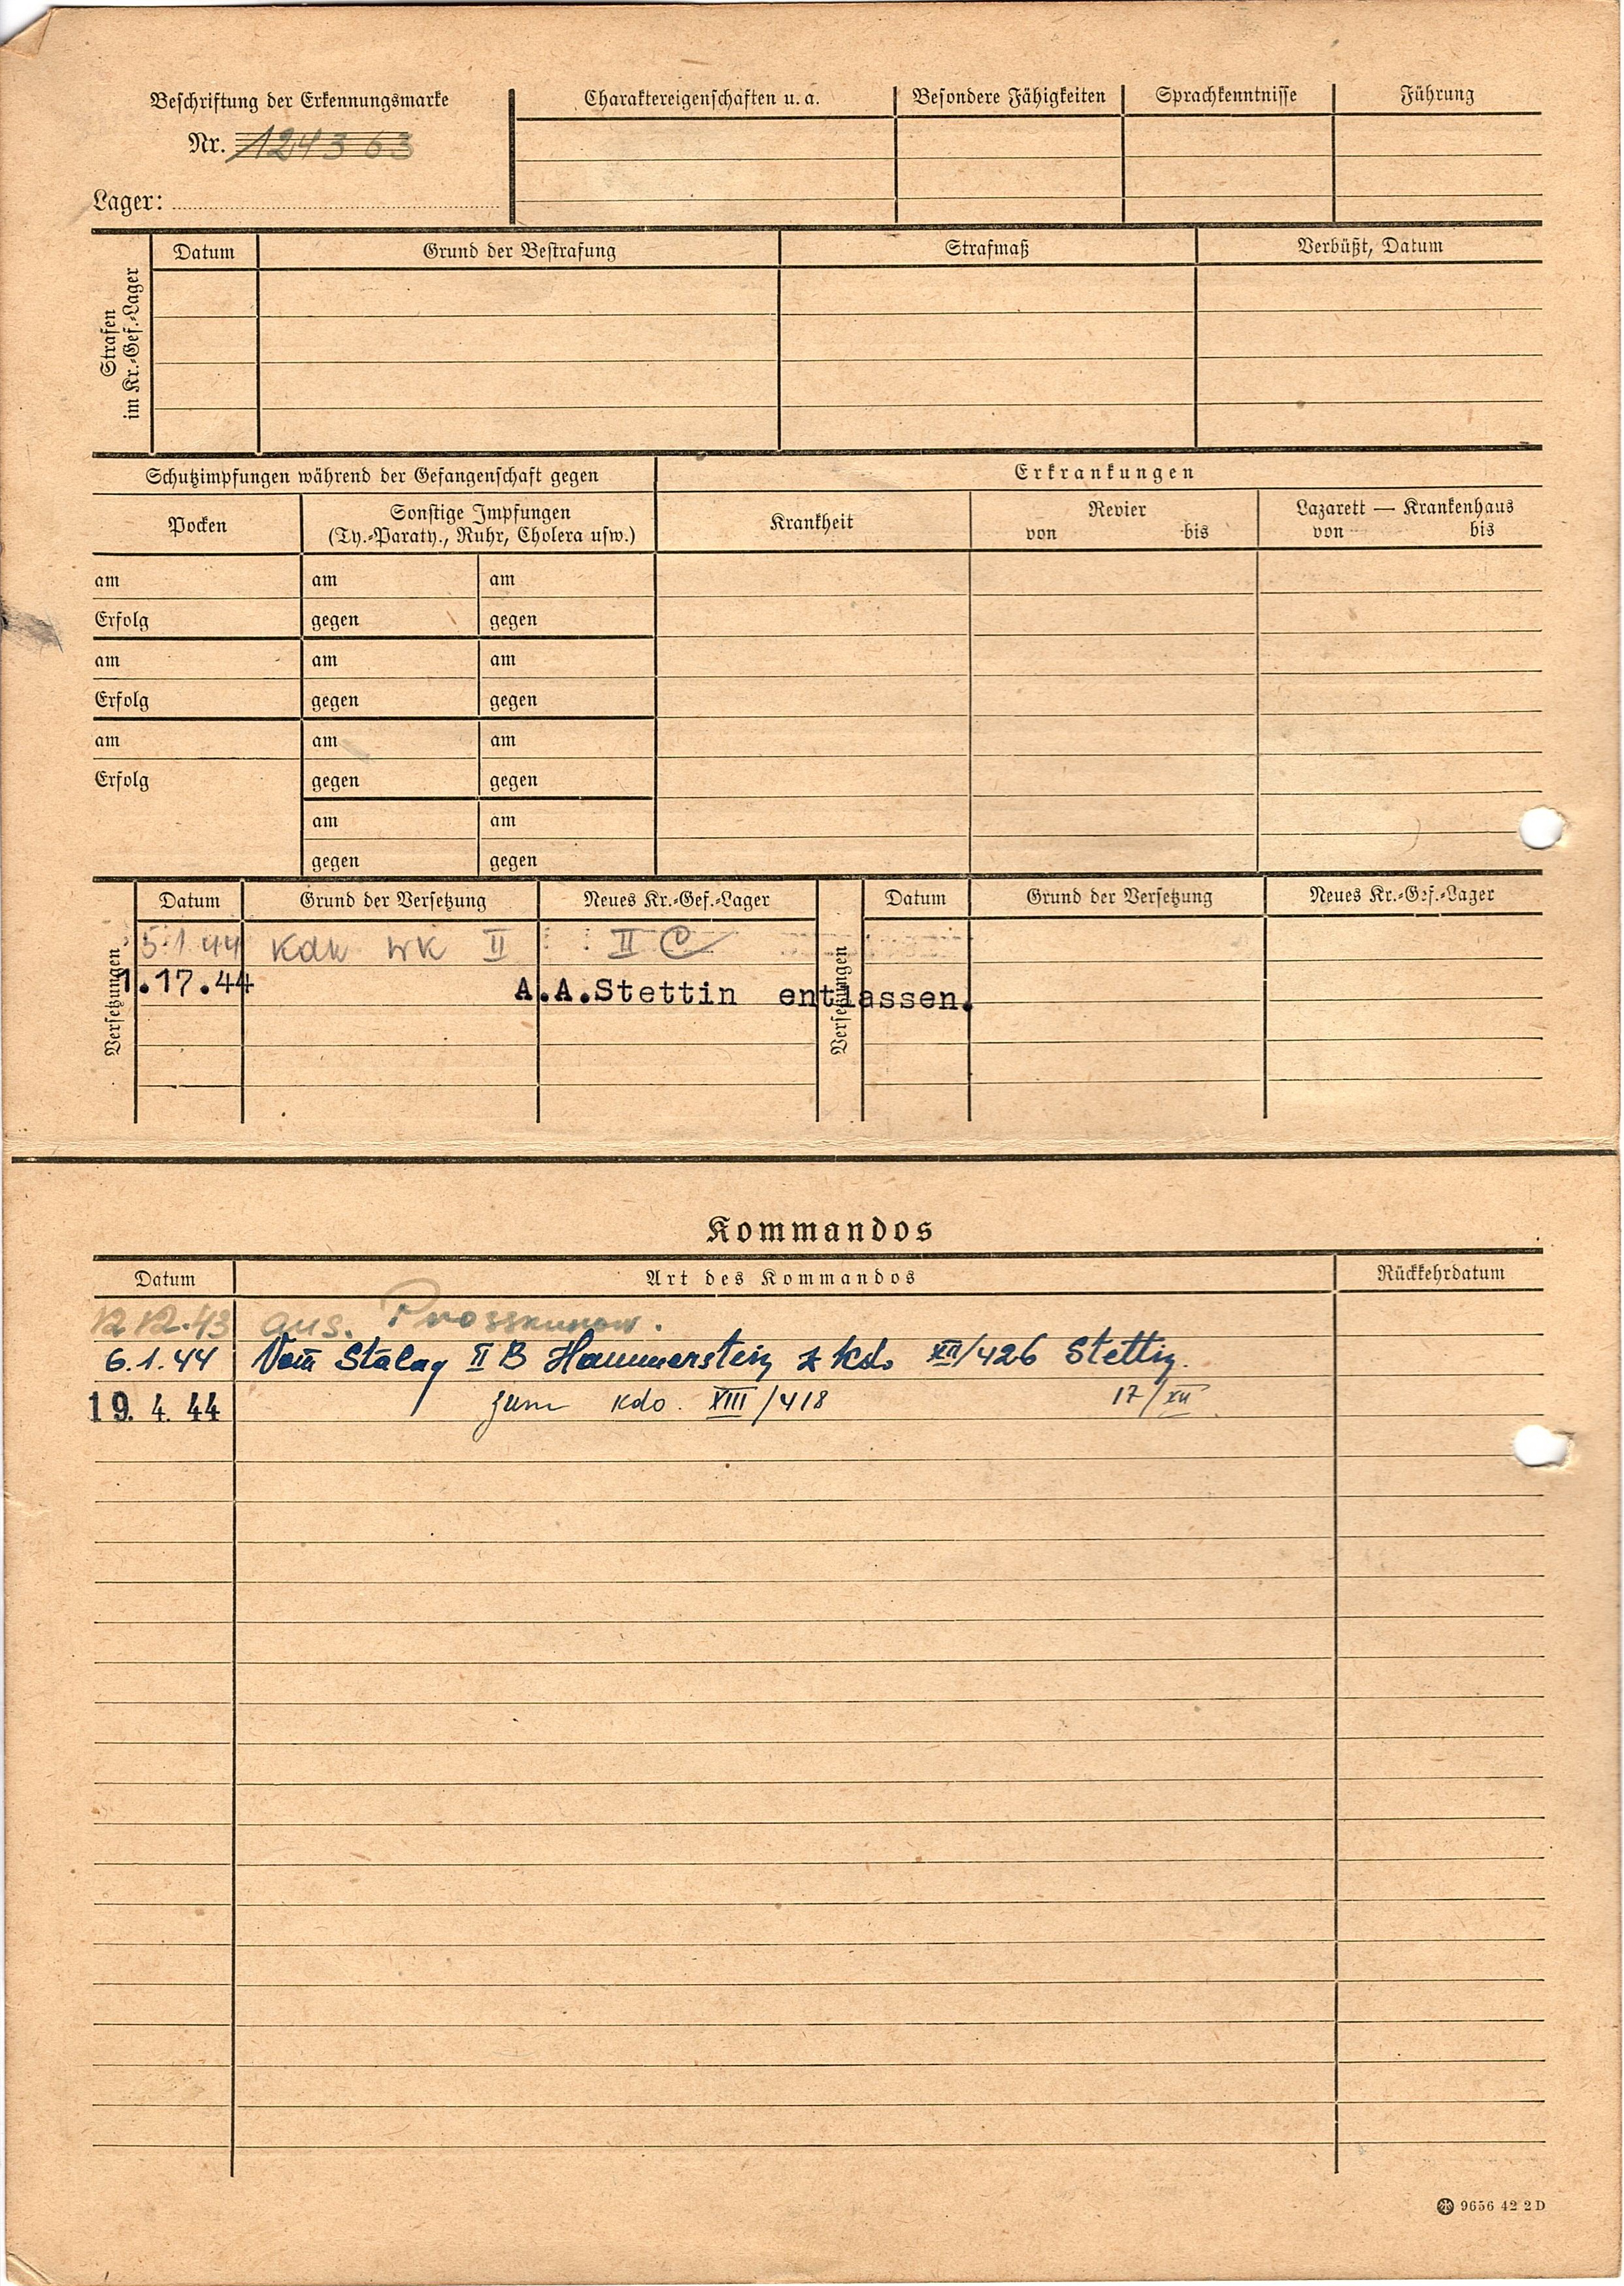 Beschriftung der Erkennungsmarke
Nr. 124363
Lager:
Charaktereigenschaften u. a. Besondere Fähigkeiten Sprachkenntnisse Führung
Strafen
im Kr.-Gef.-Lager
Datum Grund der Bestrafung Strafmaß Verbüßt, Datum
Schutzimpfungen während der Gefangenschaft gegen
Pocken
Sonstige Impfungen
(Ty.-Paraty., Ruhr, Cholera usw.)
am am am
Erfolg gegen gegen
am am am
Erfolg gegen gegen
am am am
Erfolg gegen gegen
am am
gegen gegen
Erkrankungen
Krankheit
Revier
von bis
Lazarett — Krankenhaus
von bis
Versetzungen
Datum Grund der Versetzung Neues Kr.-Gef.-Lager
5.1.44 Kdo WK II II C
1.17.44 A.A.Stettin entlassen.
Versetzungen
Datum Grund der Versetzung Neues Kr.-Gef.-Lager
Kommandos
Datum Art des Kommandos Rückkehrdatum
12.12.43 aus. Prosskurow.
6.1.44 Vom Stalag II B Hammerstein z Kdo XII/426 Stettin.
19. 4. 44 zum Kdo. XIII/418 17/XII
9656 42 2 D